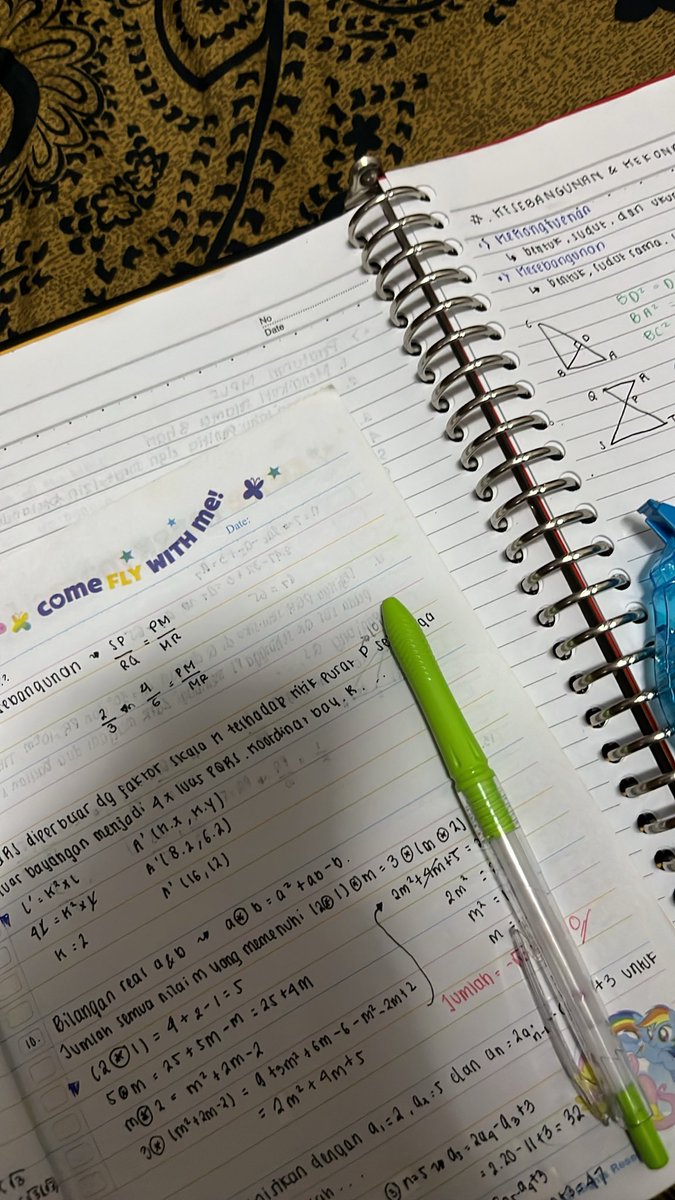 No
Date
#. KESEBANGUNAN &
•) Kekongruenan
↳ bentuk, sudut, dan
•) Kesebangunan
↳ bentuk, sudut sama,
BD² = D
BA² =
BC² =
C
D
B
A
Q
R
P
S
T
COME FLY WITH me!
Date:
SP/RQ = PM/MR
2/3 4/6 = PM/MR
diperbesar dg faktor skala k terhadap titik pusat
luar bayangan menjadi 4x luas PQRS. Koordinat bay. R...
L' = K² x L
A' (K.x, K.y)
4L = K² x L
A' (8.2, 6.2)
K = 2
A' (16, 12)
10. Bilangan real a & b → a⊛b = a² + ab - b.
Jumlah semua nilai m yang memenuhi (2⊛1)⊛m = 3⊛(m⊛2)
(2⊛1) = 4 + 2 - 1 = 5
2m² + 4m + 5 =
5⊛m = 25 + 5m - m = 25 + 4m
2m² =
m⊛2 = m² + 2m - 2
m² =
3⊛(m² + 2m - 2) = 9 + 3m² + 6m - 6 - m² - 2m + 2
m
= 2m² + 4m + 5
Jumlah =
dengan a₁ = 2, a₂ = 5 dan
+3 untuk
n = 5 → a₅ = 2a₄ - a₃ + 3
= 2.20 - 11 + 3 = 32